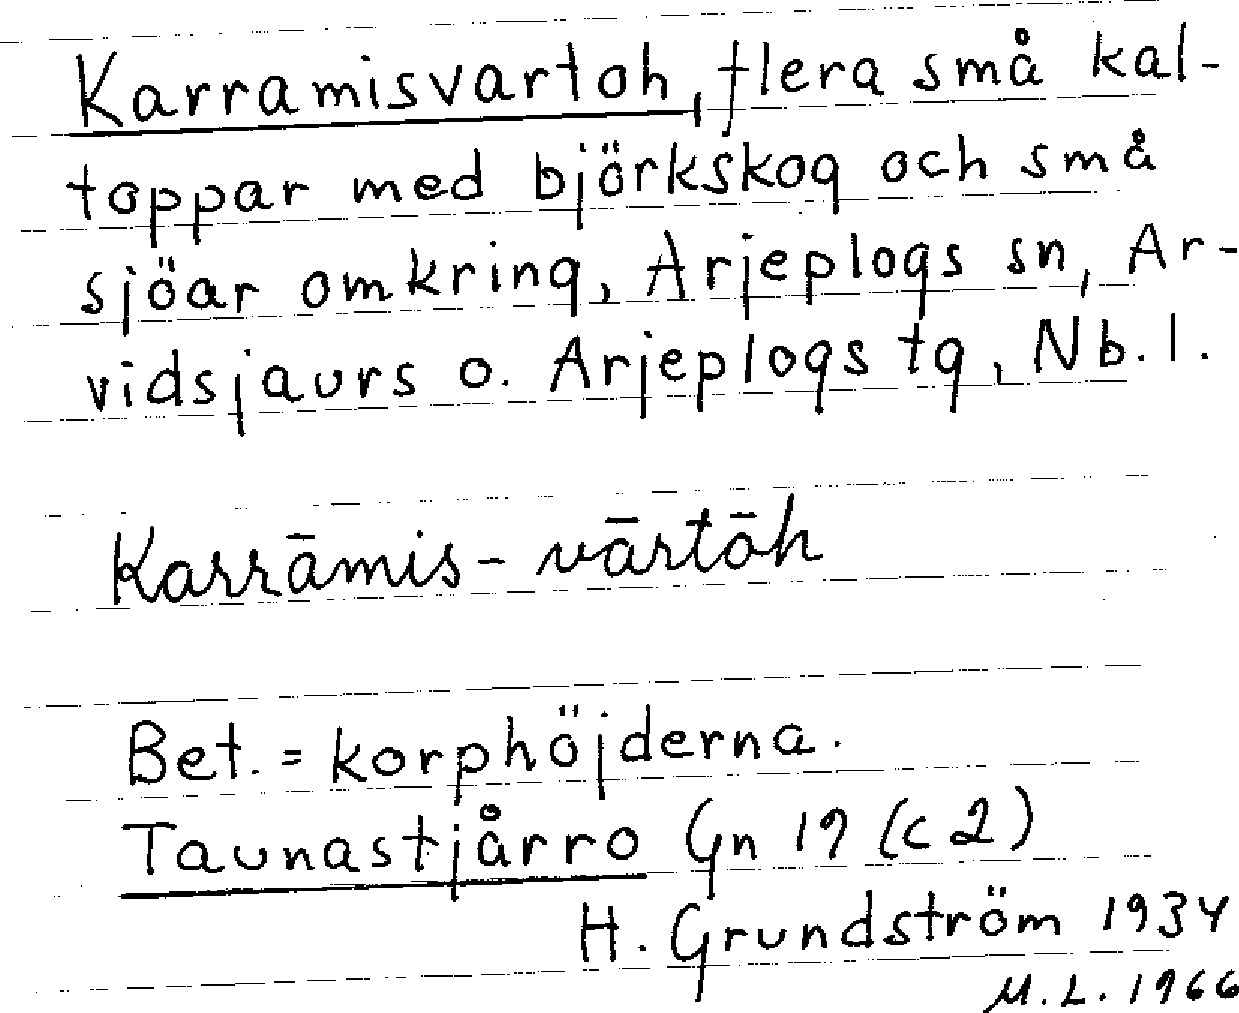 Karramisvartoh, flera små kal-
toppar med björkskog och små
sjöar omkring, Arjeplogs sn, Ar-
vidsjaurs o. Arjeplogs tg, Nb. l.
Karrāmis-vārtōh
Bet. = korphöjderna.
Taunastjårro Gn 19 (c 2)
H. Grundström 1934
M.L. 1966